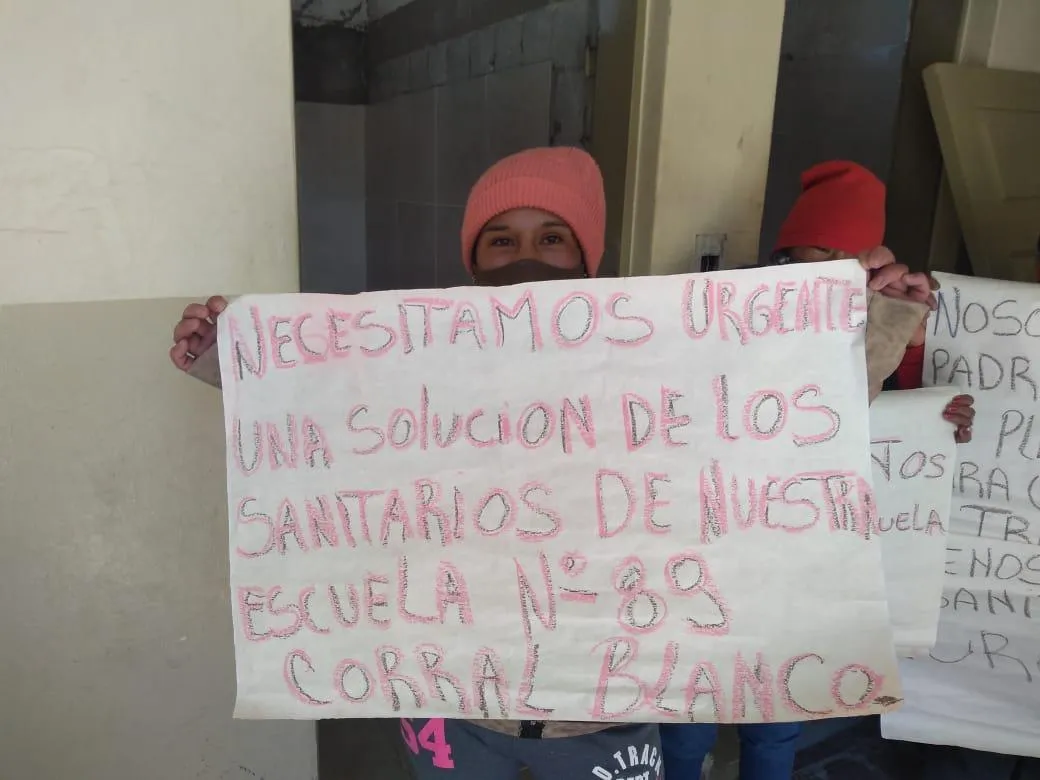 NECESITAMOS URGENTE
UNA SOLUCION DE LOS
SANITARIOS DE NUESTRA
ESCUELA Nº 89
CORRAL BLANCO
TOS
UELA
NOSO
PADR
PU
RA
TR
ENOS
SANIT
UR
04
D.TRACK